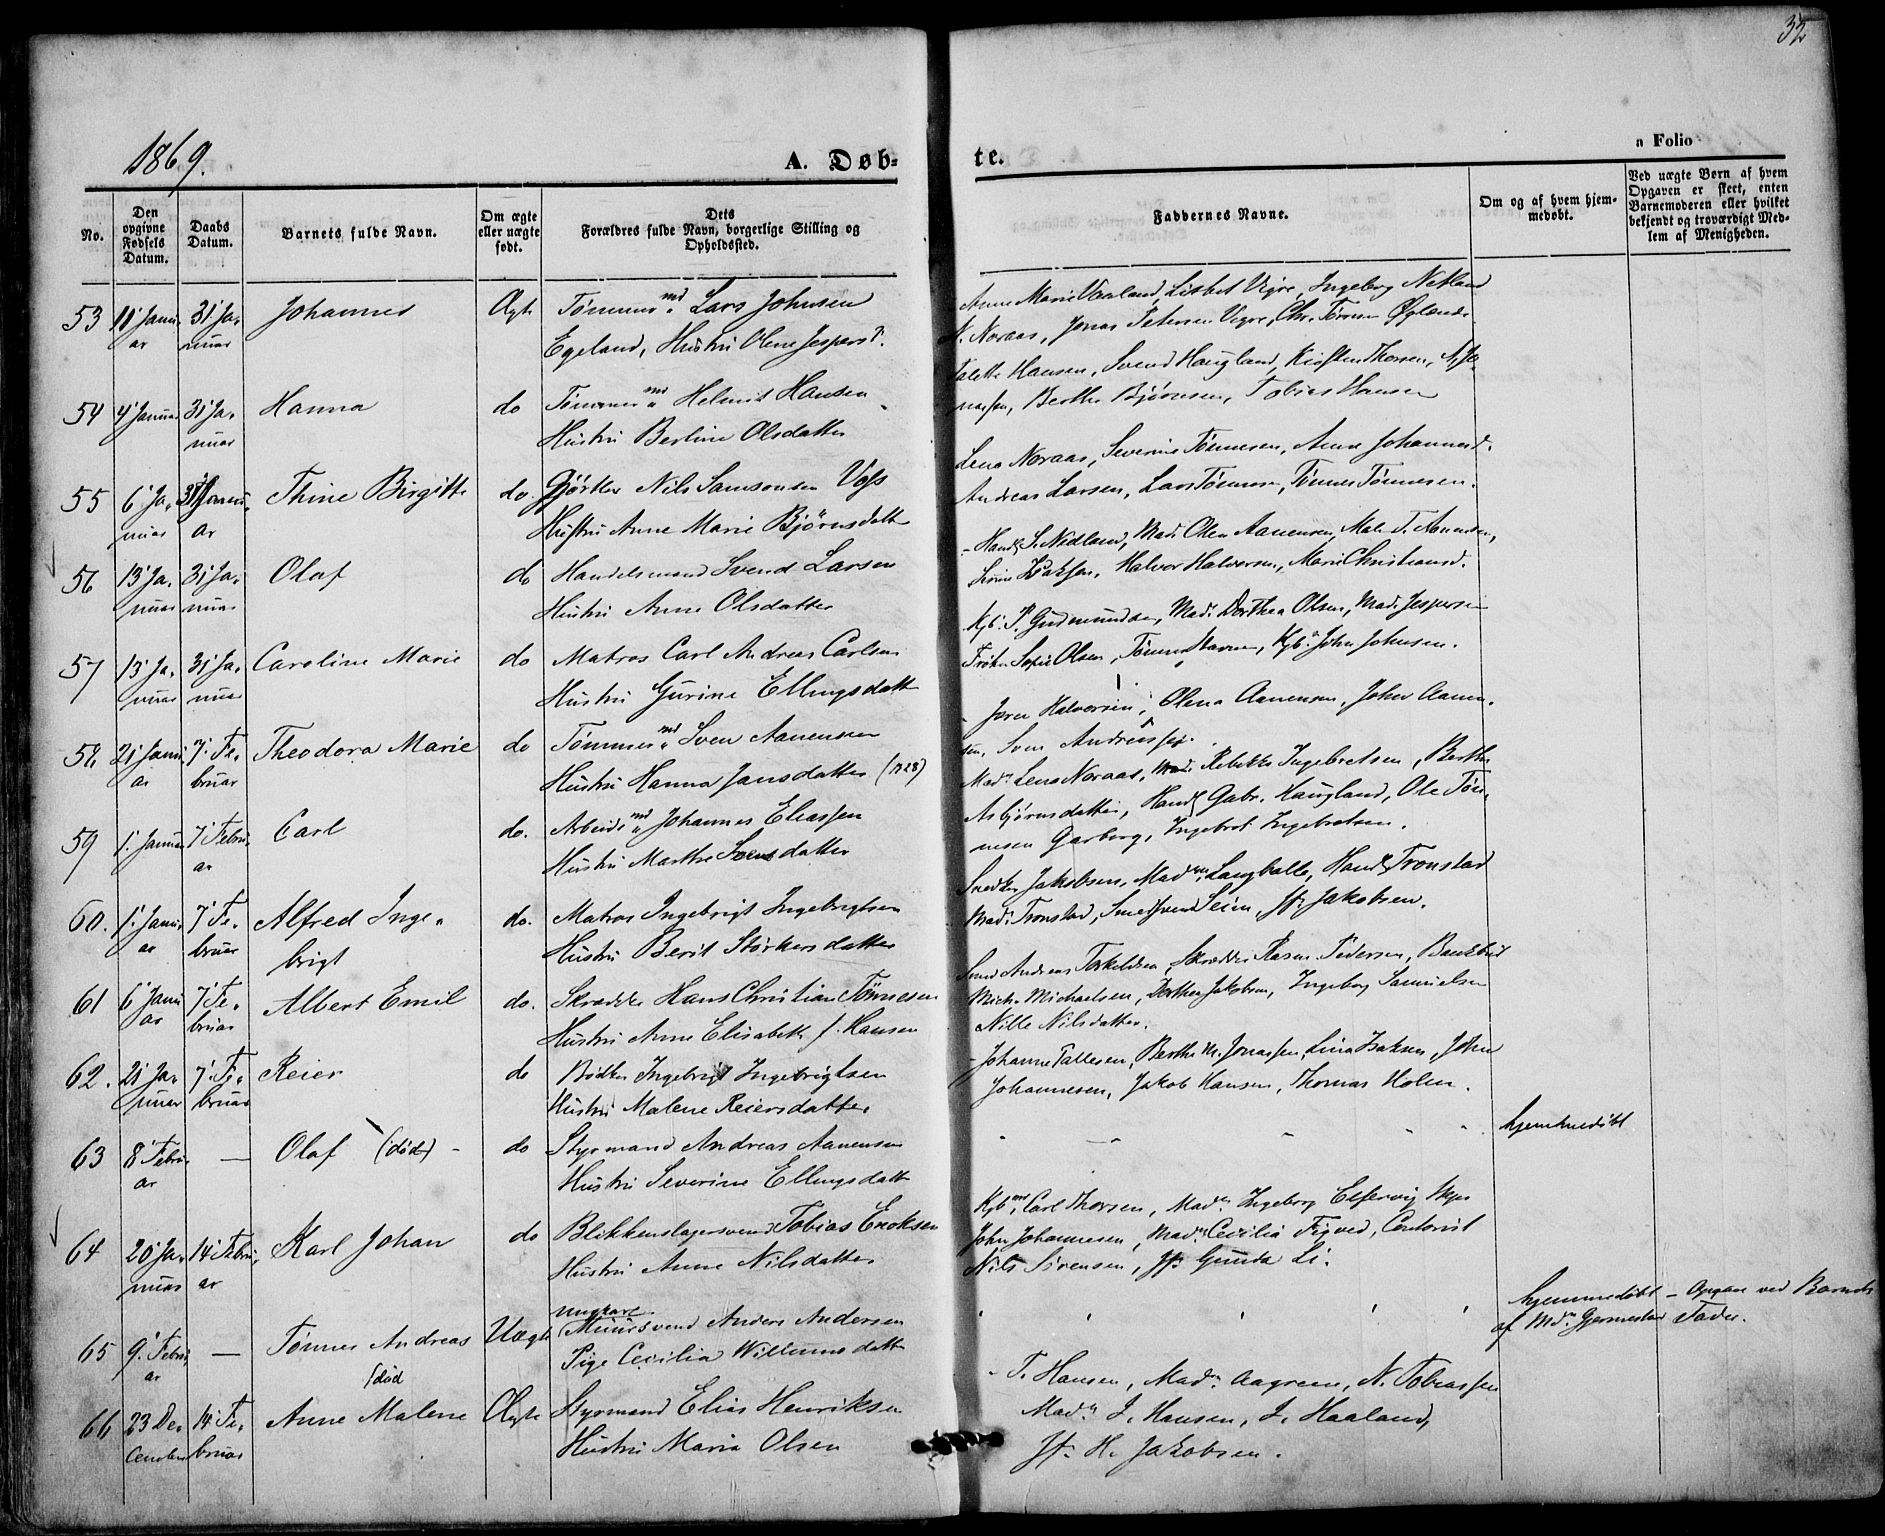 32
1869.
A. Døb=
te.
n Folio
No.
Den opgivne Fødsels Datum.
Daabs Datum.
Barnets fulde Navn.
Om ægte eller uægte født.
Dets Forældres fulde Navn, borgerlige Stilling og Opholdssted.
Faddernes Navne.
Om og af hvem hjemmedøbt.
Ved uægte Børn af hvem Opgaven er skeet, enten Barnemoderen eller hvilket bekjendt og troværdigt Medlem af Menigheden.
53 11' Januar 31' Januar Johannes Ægte Tømmermd. Lars Johnsen
Egeland, Hustru Olene Jespersd.
Anne Marie Varland, Lisbet Vigre, Ingeborg Netland
N. Noraas, Jonas Petersen Vigre, Chr. Tønnes Øglænd
54 4' Januar 31' Januar Hanna do Tømmermd. Helmik Hansen
Hustru Berline Olsdatter
Hansen, Svend Haugland, Kirsten Thorsen, A. Jo=
nassen, Berthe Bjørnsen, Tobias Hansen
55 6' Januar 31' Januar Thine Birgitte do. Gjørtler Nils Samsonsen Voss
Hustru Anne Marie Bjørnsdatt
Lena Noraas, Severine Tønnesen, Anne Johannesd.
Andreas Larsen, Lars Tønnesen, Tønnes Tønnesen.
56 13' Januar 31' Januar Olaf do Handelsmand Svend Larsen
Hustru Anne Olsdatter
Handl. S. Nedland, Mad. Olen Aanensen, Male T. Aanensen,
Serine Isaksen, Halvor Halvorsen, Marie Christiansd.
57 13' Januar 31' Januar Caroline Marie do Matros Carl Andreas Carlsen
Hustru Gurine Ellingsdatt
Kjb. P. Gudmundsen, Mad. Dorthea Olsen, Mad. Jespersen
Frøken Sofie Olsen, Tønnes Stavnem, Kjb. John Johnsen.
58. 21' Januar 7' Februar Theodora Marie do Tømmermd. Sven Aanensen
Hustru Hanna Jansdatter (1728)
Jører Halvorsen, Olena Aanensen, John Aanen=
sen, Sven Andreassen.
59 1' Januar 7' Februar Carl do. Arbeidsmd. Johannes Eliassen
Hustru Marthe Svensdatter
Madm. Lena Noraas, Mad. Rebekka Ingebretsen, Berthe
Asbjørnsdatter, Handl. Gabr. Haugland, Ole Tøn=
nesen Garborg, Ingebret Ingebretsen.
60. 1' Januar 7' Februar Alfred Inge=
brigt
do. Matros Ingebrigt Ingebrigtsen
Hustru Berit Størkersdatter
Snedker Jakobsen, Madm. Langballe, Handl. Tronstad
Mad. Tronstad, Smedsvend Seim, Jfr. Jakobsen.
61 6' Januar 7' Februar Albert Emil do. Skrædder Hans Christian Tønnesen
Hustru Anne Elisabeth f. Hansen
Smed Andreas Torkeldsen, Skrædder Rasm. Pedersen, Bankbud
Mich. Michaelsen, Dorthea Jakobsen, Ingeborg Samuelsen
Nille Nilsdatter.
62. 21' Januar 7' Februar Reier do Bødker Ingebrigt Ingebrigtsen
Hustru Malene Reiersdatter
Johanne Tallesen, Berthe M. Jonassen, Lina Isaksen, John
Johannesen, Jakob Hansen, Thomas Holen.
63 8' Februar — Olaf (død) do Styrmand Andreas Aanensen
Hustru Severine Ellingsdatt
hjemmedøbt
64 20' Januar 14' Februar Karl Johan do Blikkenslagersvend Tobias Enoksen
Hustru Anne Nilsdatter
Kjbmd. Carl Thorsen, Madm. Ingeborg Elfervig
John Johannesen, Madm. Cecilia Figved, Contorist
Nils Sørensen, Jfr. Gunda Li.
65 9' Februar — Tønnes Andreas
(død
Uægte Ungkarl
Muursvend Anders Andersen
Pige Cecilia Willumsdatt
hjemmedøbt
af Mdm. Gjermestad
Opgave ved Barnets
Fader.
66 23 December 14' Februar Anne Malene Ægte Styrmand Elias Henriksen
Hustru Maria Olsen
T. Hansen, Madm. Aagreen, N. Tobiassen
Madm. J. Hansen, J. Haaland,
Jfr. H. Jakobsen.